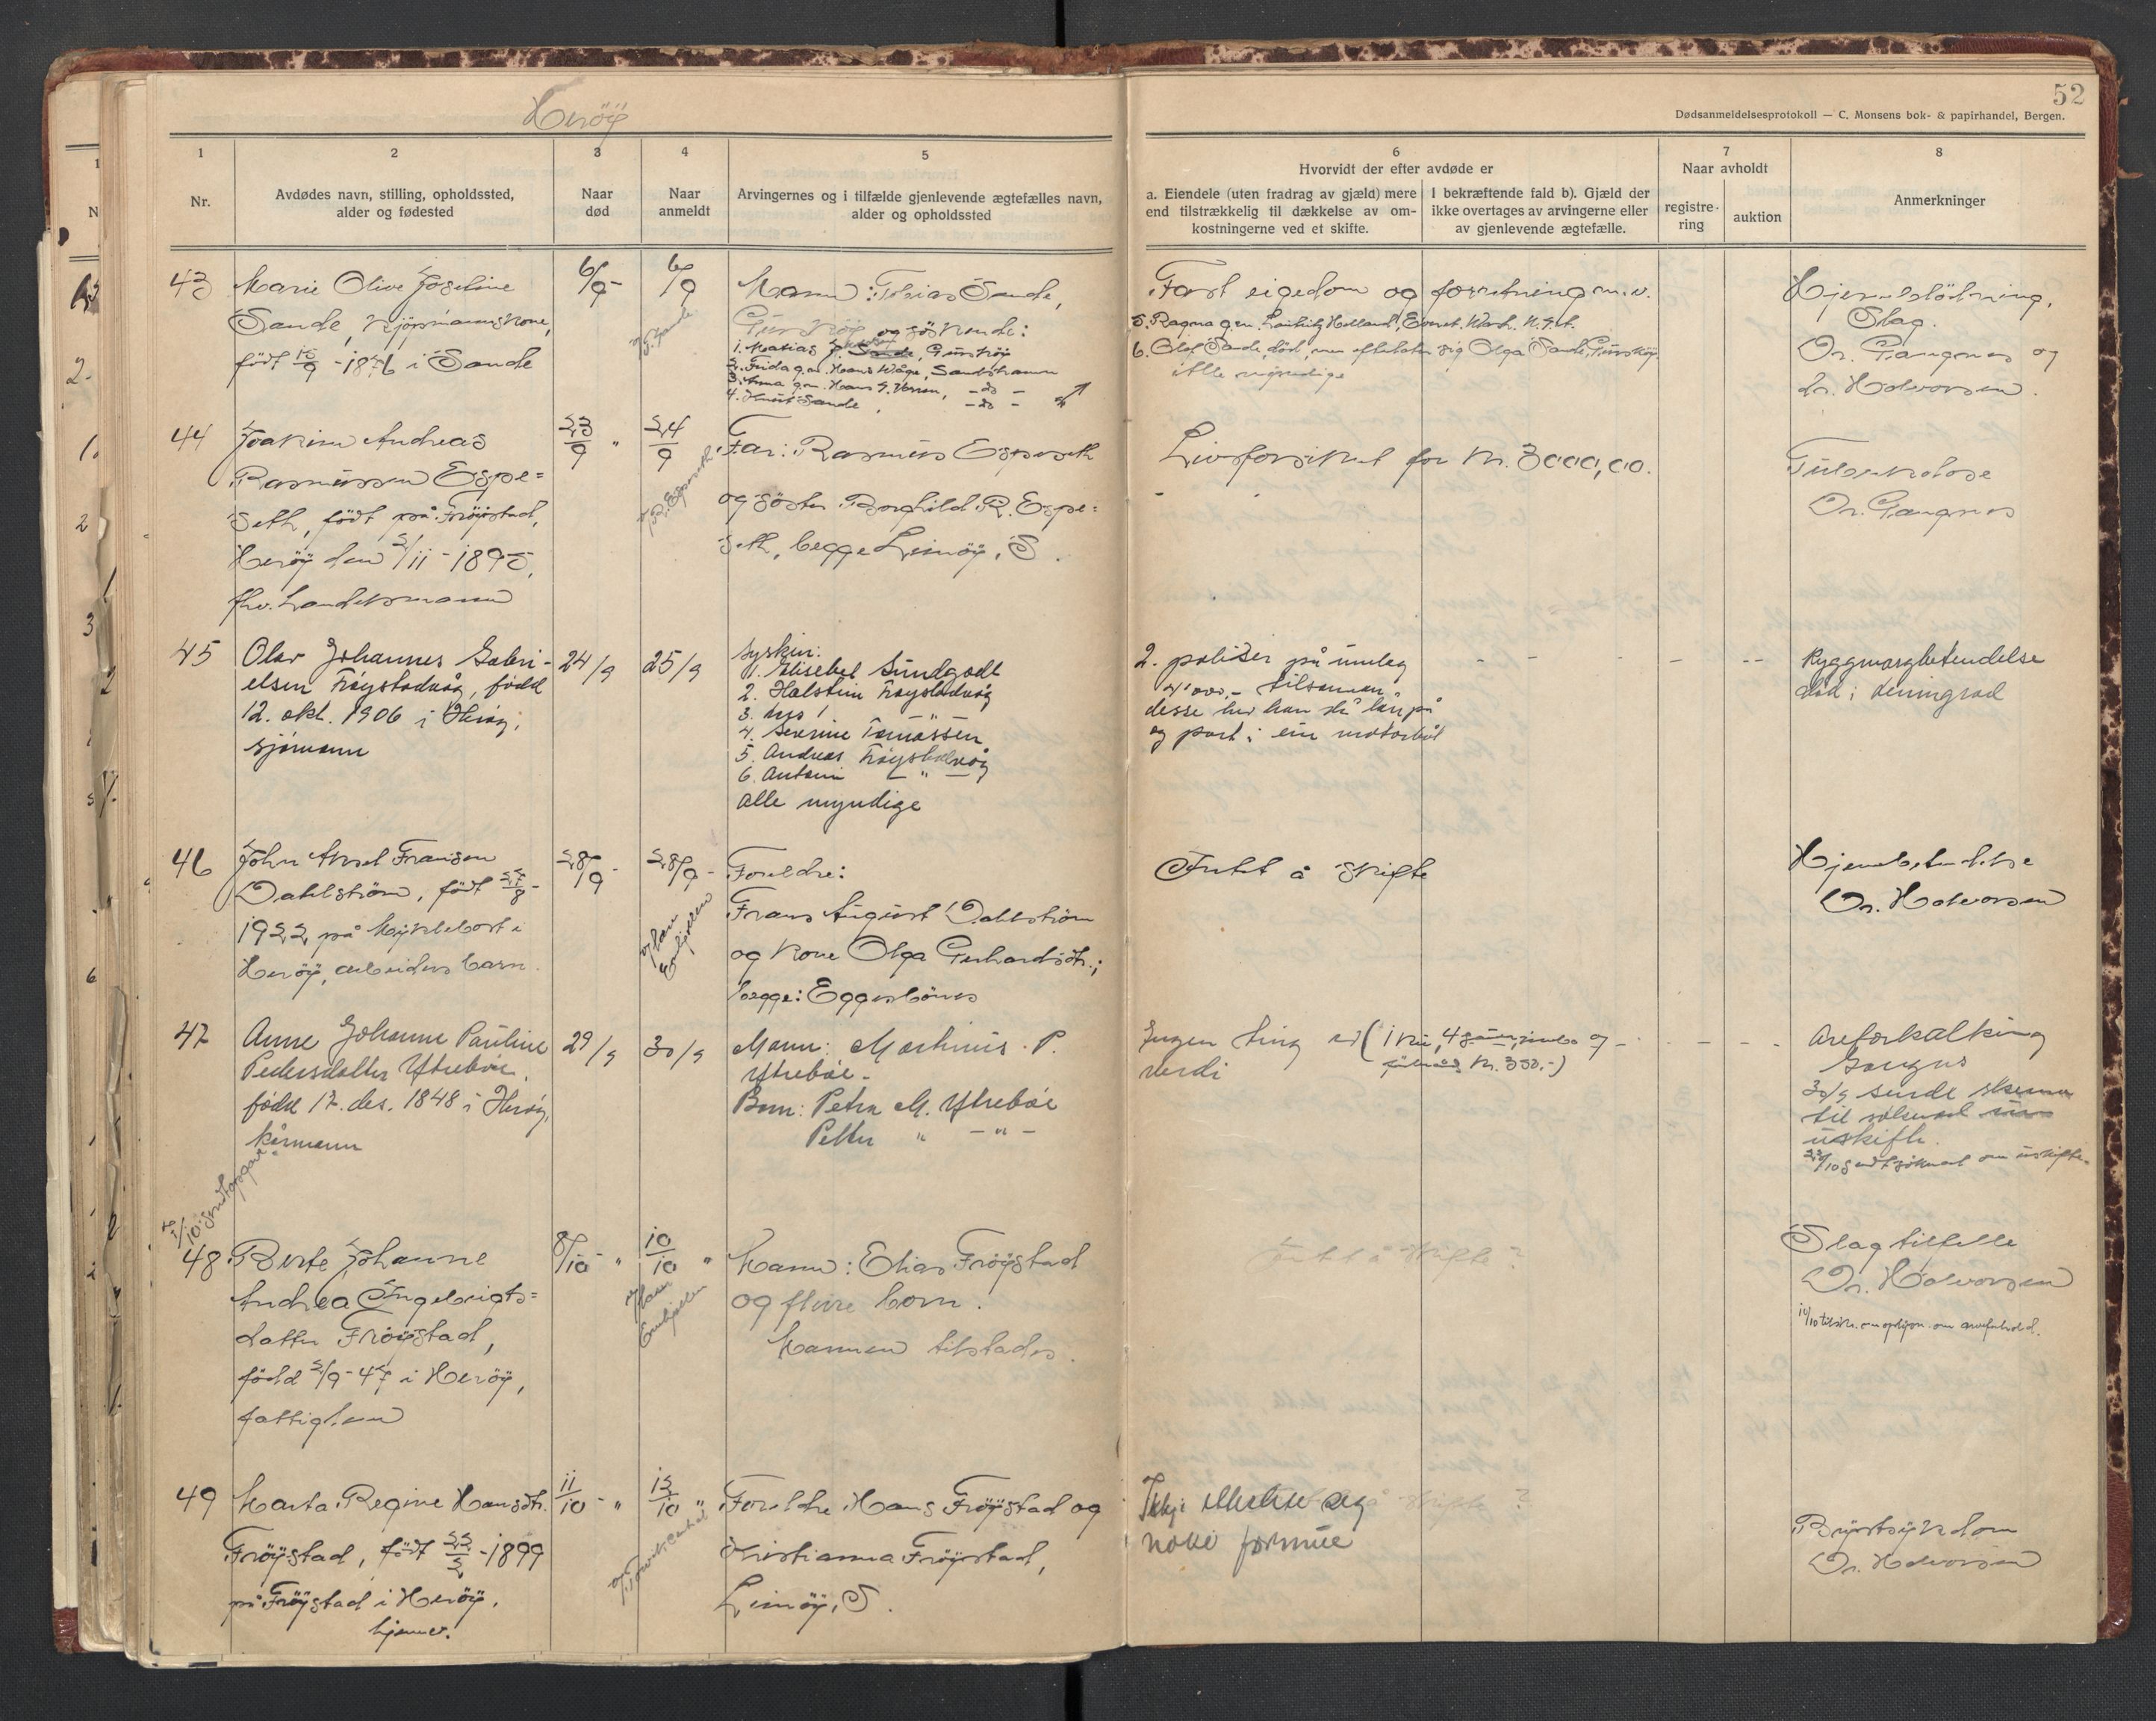 Herøy
52
Dødsanmeldelsesprotokoll — C. Monsens bok- & papirhandel, Bergen.
1
Nr.
2
Avdødes navn, stilling, opholdssted,
alder og fødested
3
Naar
død
4
Naar
anmeldt
5
Arvingernes og i tilfælde gjenlevende ægtefælles navn,
alder og opholdssted
6
Hvorvidt der efter avdøde er
a. Eiendele (uten fradrag av gjæld) mere
end tilstrækkelig til dækkelse av om-
kostningerne ved et skifte.
I bekræftende fald b). Gjæld der
ikke overtages av arvingerne eller
av gjenlevende ægtefælle.
7
Naar avholdt
registre-
ring
auktion
8
Anmerkninger
43
Marie Olive Joseline
Sande, kjøpmannskone,
født 15/9 - 1876 i Sande
6/9 -
6/9
Mann: Tobias Sande,
Gurskøy og søskende:
1. Matias J. Sande, Gurskøy
2. Frida g.m. Hans Våge, Sandshamn
3. Anna g.m. Hans S. -do-
4. Knut Sande, -do-
Fast eigedom og forretning m.v.
5. Ragna g.m. Helland,
6. Olof Sande, død, men efterlater sig Olga Sande, Gurskøy.
Alle myndige
Hjerneblødning,
Slag.
Dr. Gangnes og
dr. Halvorsen.
44
Joakim Andreas
Rasmussen Espe=
seth, født på Frøystad,
Herøy den 2/11 - 1895,
fhv. landhandelsmann
23/9 "
24/9
Far: Rasmus Espeseth
og søster Borghild R. Espe=
seth, begge Leinøy, S.
Livsforsikret for kr. 3000,00.
Tuberkulose
Dr. Gangnes
45
Olav Johannes Gabri-
elsen Frøystadvåg, fødd
12. okt. 1906 i Herøy,
sjømann
24/9
25/9
Syskin:
1. Elisebet Sundgodt
2. Halstein Frøystadvåg
3.
4. Severine Tomassen
5. Andreas Frøystadvåg
6. Antoni - " -
alle myndige
2. poliser på umlag
4000,- tilsaman.
desse har han lån på
og part i ein motorbåt
Ryggmargbetendelse
død i Leningrad
46
John Aksel Fransen
Dahlstrøm, født 27/8 -
1922 på Myklebost i
Herøy, arbeiders barn.
28/9 -
28/9 -
Foreldre:
Frans August Dahlstrøm
og kone Olga Gerhardsdtr.;
begge: Eggesbønes
Intet å skifte
Hjernebetendelse
Dr. Halvorsen
47
Anne Johanne Pauline
Pedersdatter Ytrebøe,
fødd 17. des. 1848 i Herøy,
kårmann
29/9
30/9
Mann: Martinus P.
Ytrebøe -
Born: Petra M. Ytrebøe
Petter " - " -
Ingen ting av (1 ku, 4 og
verdi kr. 350.-)
Areforkalking
Gangnes
30/9 sende skema
til søknad um
uskifte.
23/10 sendt søknad om uskifte.
48
Berte Johanne
Andrea Ingebrigts=
datter Frøystad,
fødd 2/9 - 47 i Herøy,
fattiglem
8/10 - "
10/10 "
Mann: Elias Frøystad
og fleire born.
Mannen tilstades.
Intet å skifte?
Slagtilfelle
Dr. Halvorsen
49
Marta Regine Hansdtr.
Frøystad, født 22/2 - 1899
på Frøystad i Herøy,
hjemmev.
11/10 - "
12/10 "
Foreldre Hans Frøystad og
Kristianna Frøystad,
Leinøy, S.
Ikkje etterlate seg
noko formue
Brystsykdom
Dr. Halvorsen